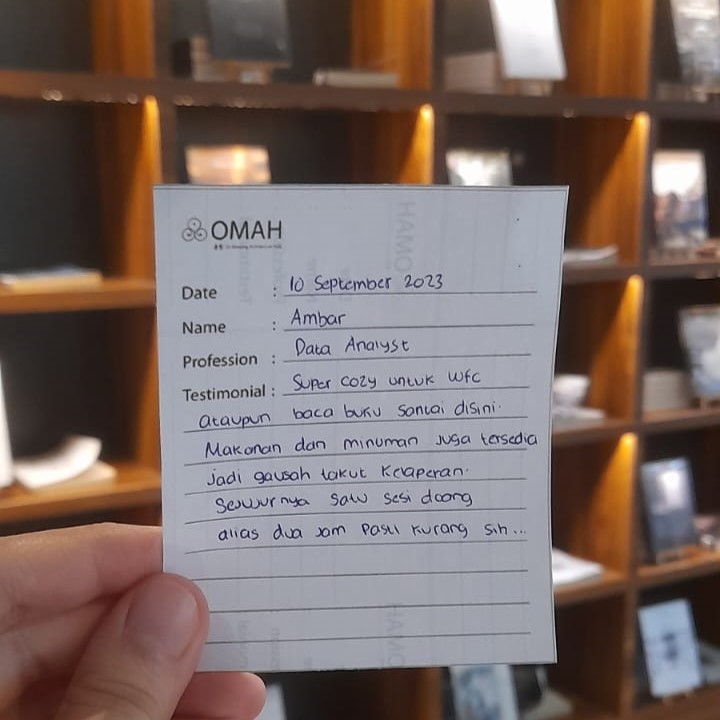 OMAH
Date : 10 September 2023
Name : Ambar
Profession : Data Analyst
Testimonial : Super cozy untuk wfc
ataupun baca buku santai disini.
Makanan dan minuman juga tersedia
jadi gausah takut kelaperan.
Sejujurnya satu sesi doang
alias dua jam pasti kurang sih...